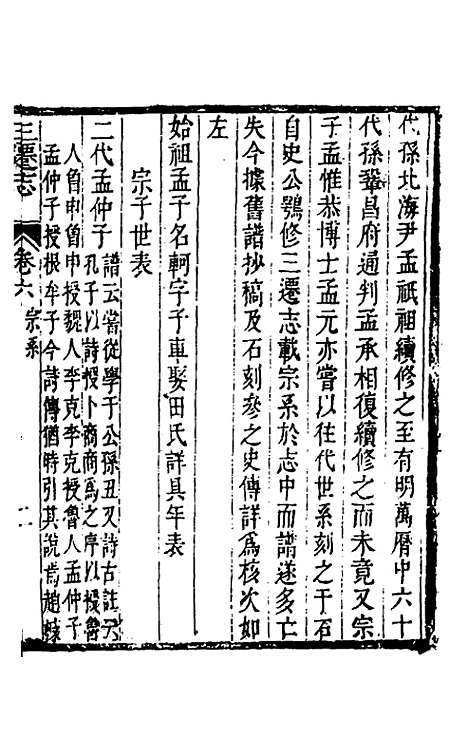 代孫北海尹孟祇祖續修之至有明萬曆中六十
代孫鞏昌府通判孟承相復續修之而未竟又宗
子孟惟恭博士孟元亦嘗以往代世系刻之于石
自史公鶚修三遷志載宗系於志中而譜遂多亡
失今據舊譜抄稿及石刻參之史傳詳為核次如
左
始祖孟子名軻字子車娶田氏詳具年表
宗子世表
二代孟仲子譜云嘗從學于公孫丑又詩古註云
孔子以詩授卜商商為之序以授魯
人曾申曾申授魏人李克李克授魯人孟仲子
孟仲子授根牟子今詩傳猶時引其說焉趙
三遷志
卷六
宗系
二